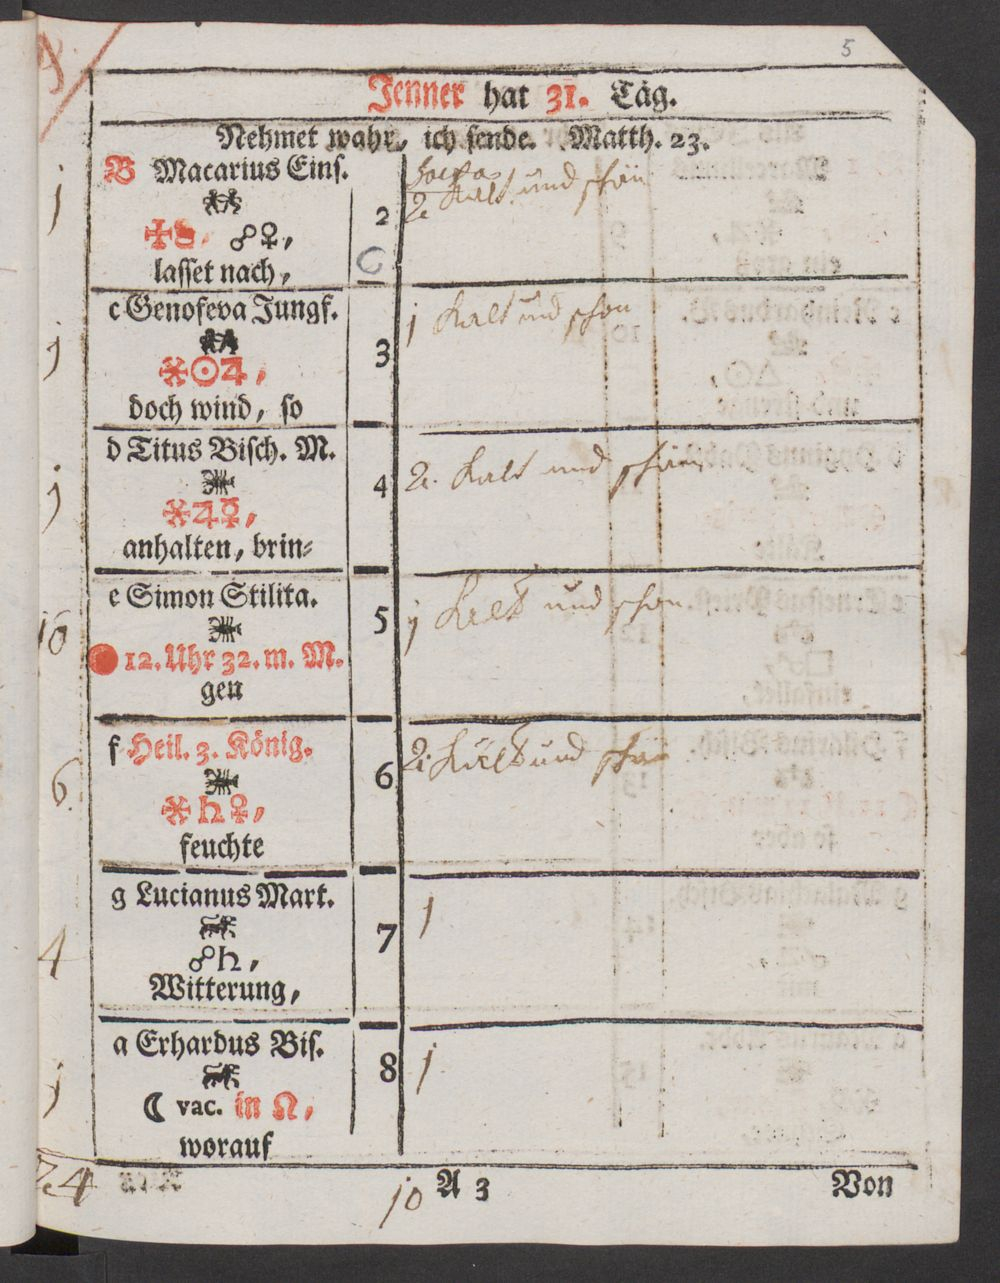 5
Jenner hat 31. Täg.
Nehmet wahr, ich sende. Matth. 23.
B Macarius Eins.
☍♀,
lasset nach,
2
2. Kalt und schön
c Genofeva Jungf.
☉♃,
doch wind, so
3
1 Kalt und schön
d Titus Bisch. M.
♃☿,
anhalten, brin⸗
4
2. Kalt und schön
e Simon Stilita.
12. Uhr 32. m. M.
gen
5
1 Kalt und schön
f Heil. 3. König.
♄♀,
feuchte
6
2. Kalt und schön
g Lucianus Mart.
☍♄,
Witterung,
7
1
a Erhardus Bis.
☾ vac. in ♌,
worauf
8
1
10
A 3
Von